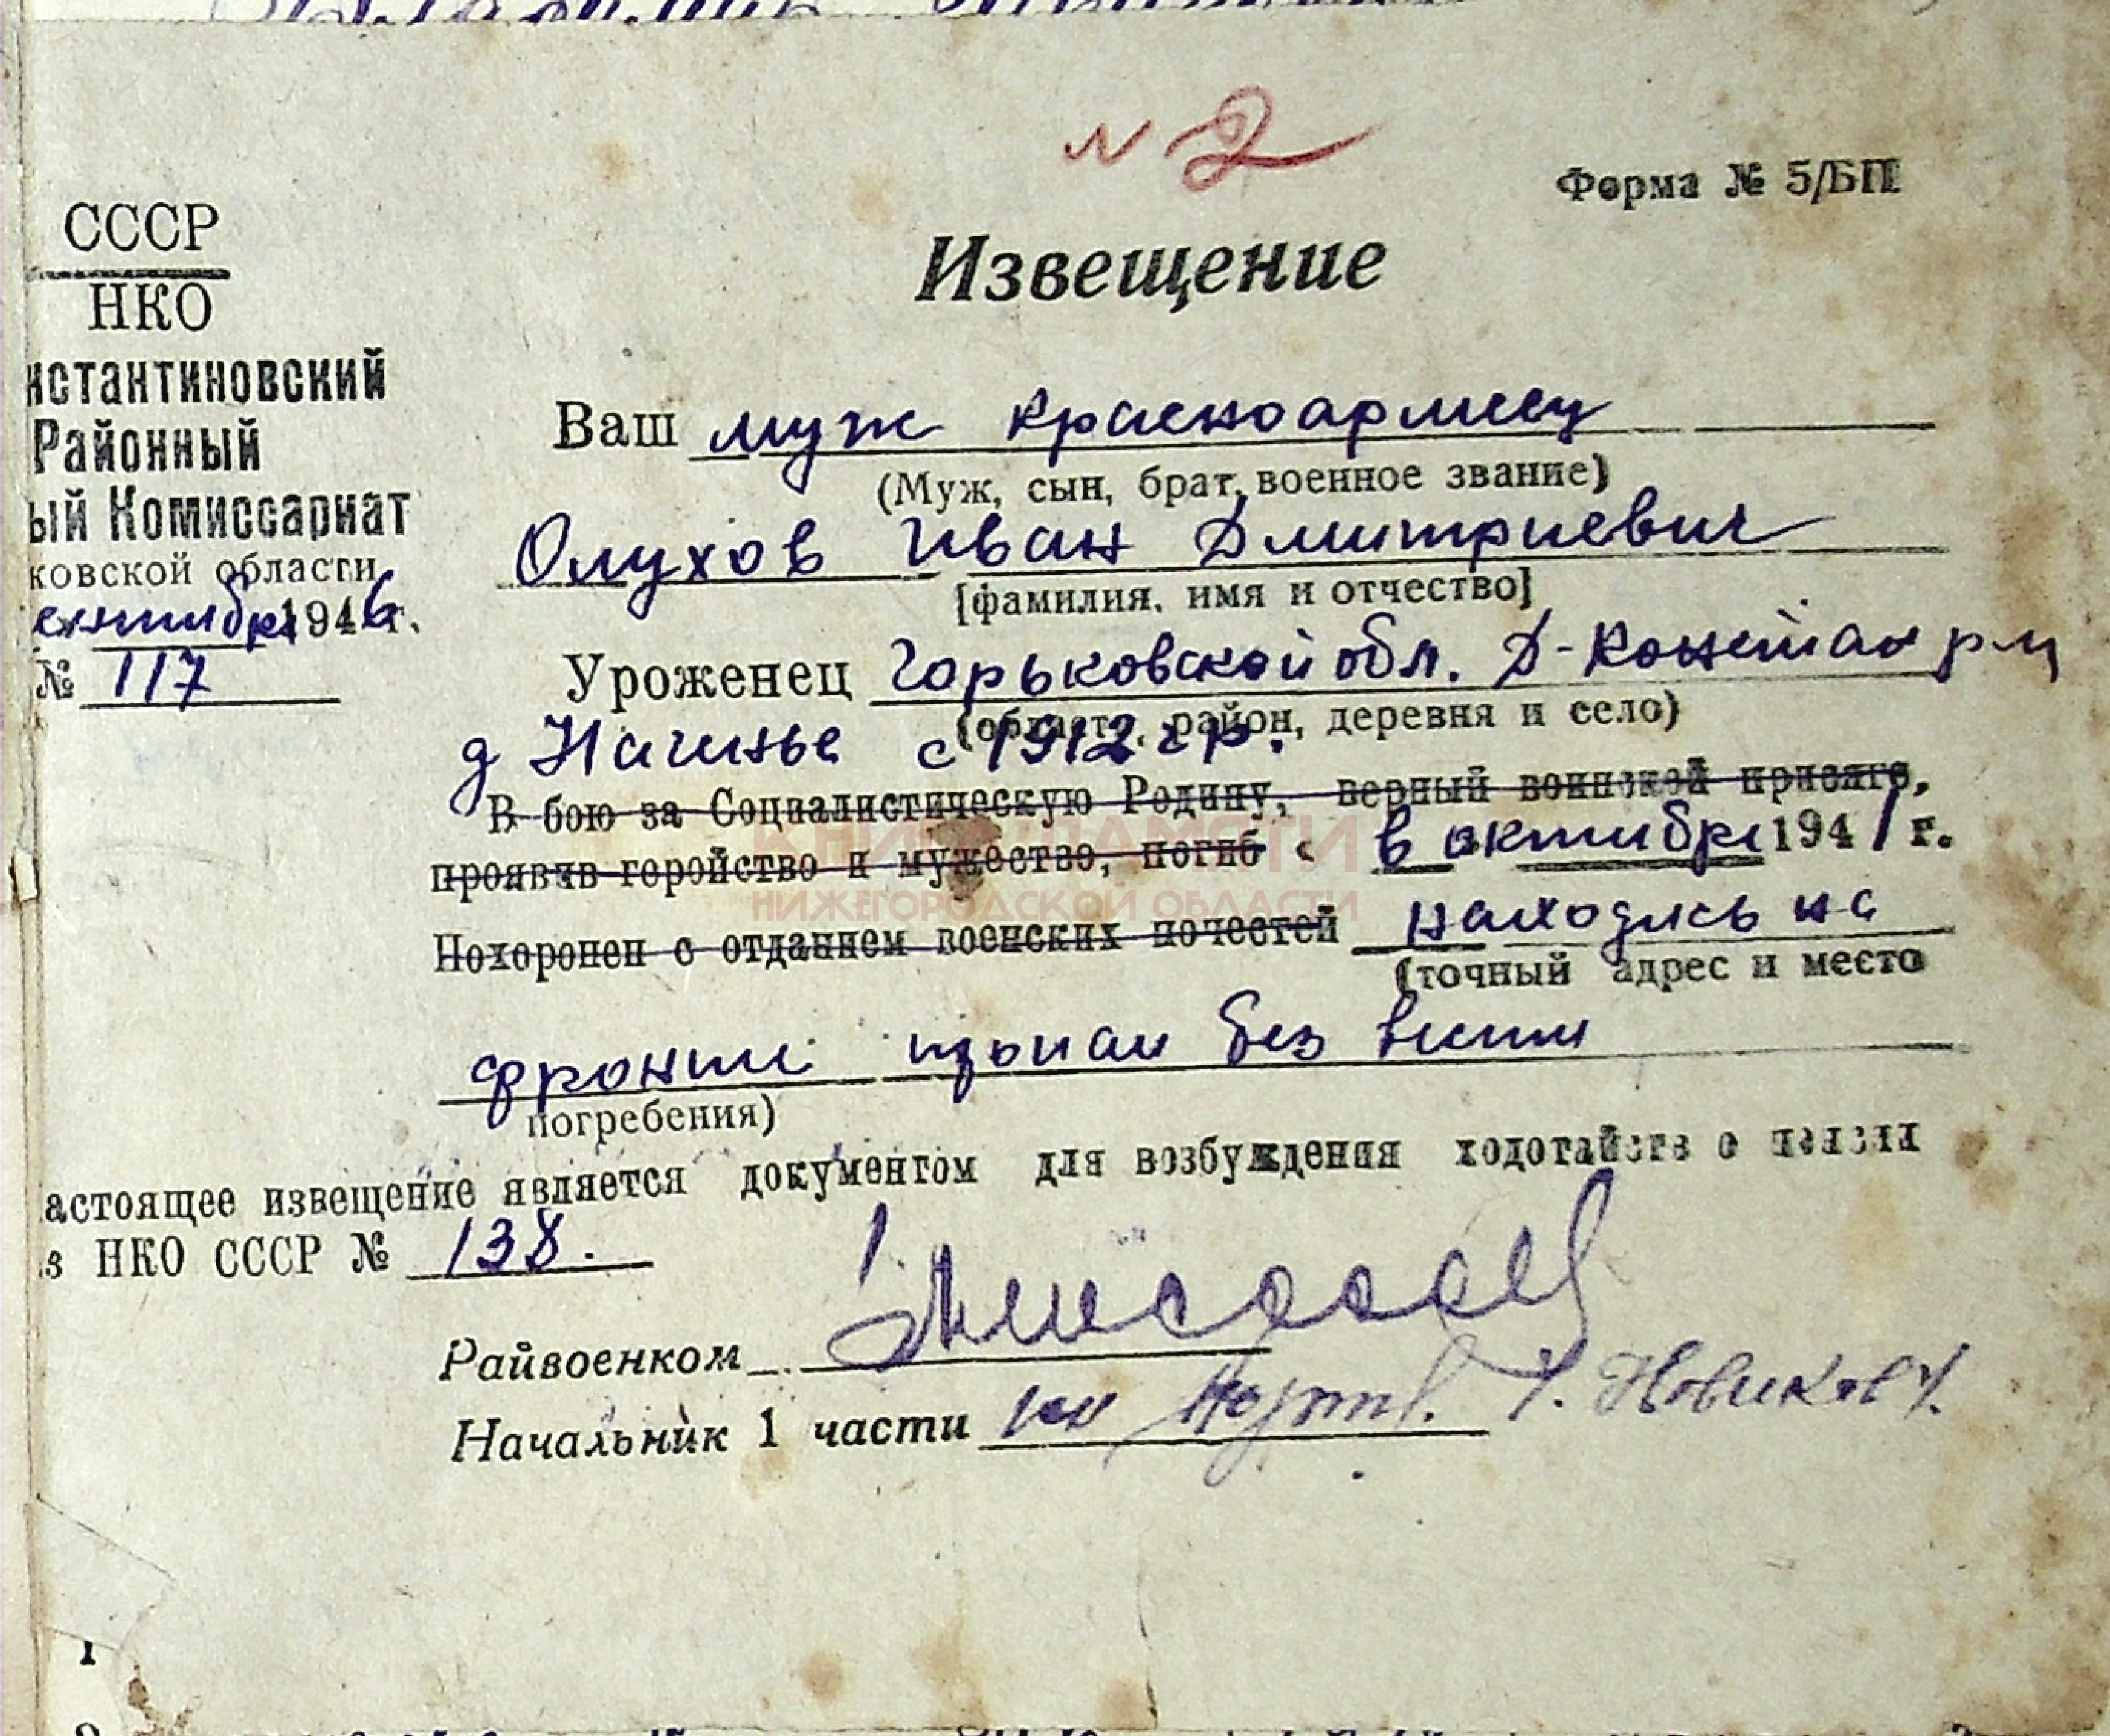 № 2
Форма № 5/БП
СССР
НКО
нстантиновский
Районный
ый Комиссариат
ковской области
ентября 1946 г.
№ 117
Извещение
Ваш муж красноармеец
(Муж, сын, брат, военное звание)
Олухов Иван Дмитриевич
[фамилия, имя и отчество]
Уроженец Горьковской обл. Д-Констан р-н
(область, район, деревня и село)
д с 1912 г р.
В бою за Социалистическую Родину, верный воинской присяге,
проявив геройство и мужество, погиб « в октябре 1941 г.
КНИГА ПАМЯТИ
НИЖЕГОРОДСКОЙ ОБЛАСТИ
Похоронен с отданием военских почестей находясь на
(точный адрес и место
фронте пропал без вести
погребения)
астоящее извещение является документом для возбуждения ходотайств о пенсии
з НКО СССР № 138.
Райвоенком
Начальник 1 части Новиков
1